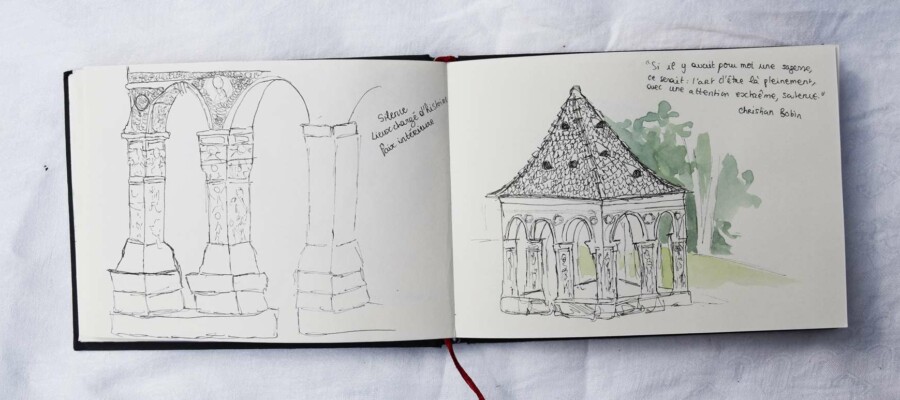 Silence
Lieux chargé d'histoire
Paix intérieure
"Si il y avait pour moi une sagesse,
ce serait : l'art d'être là pleinement,
avec une attention extrême, soutenue."
Christian Bobin